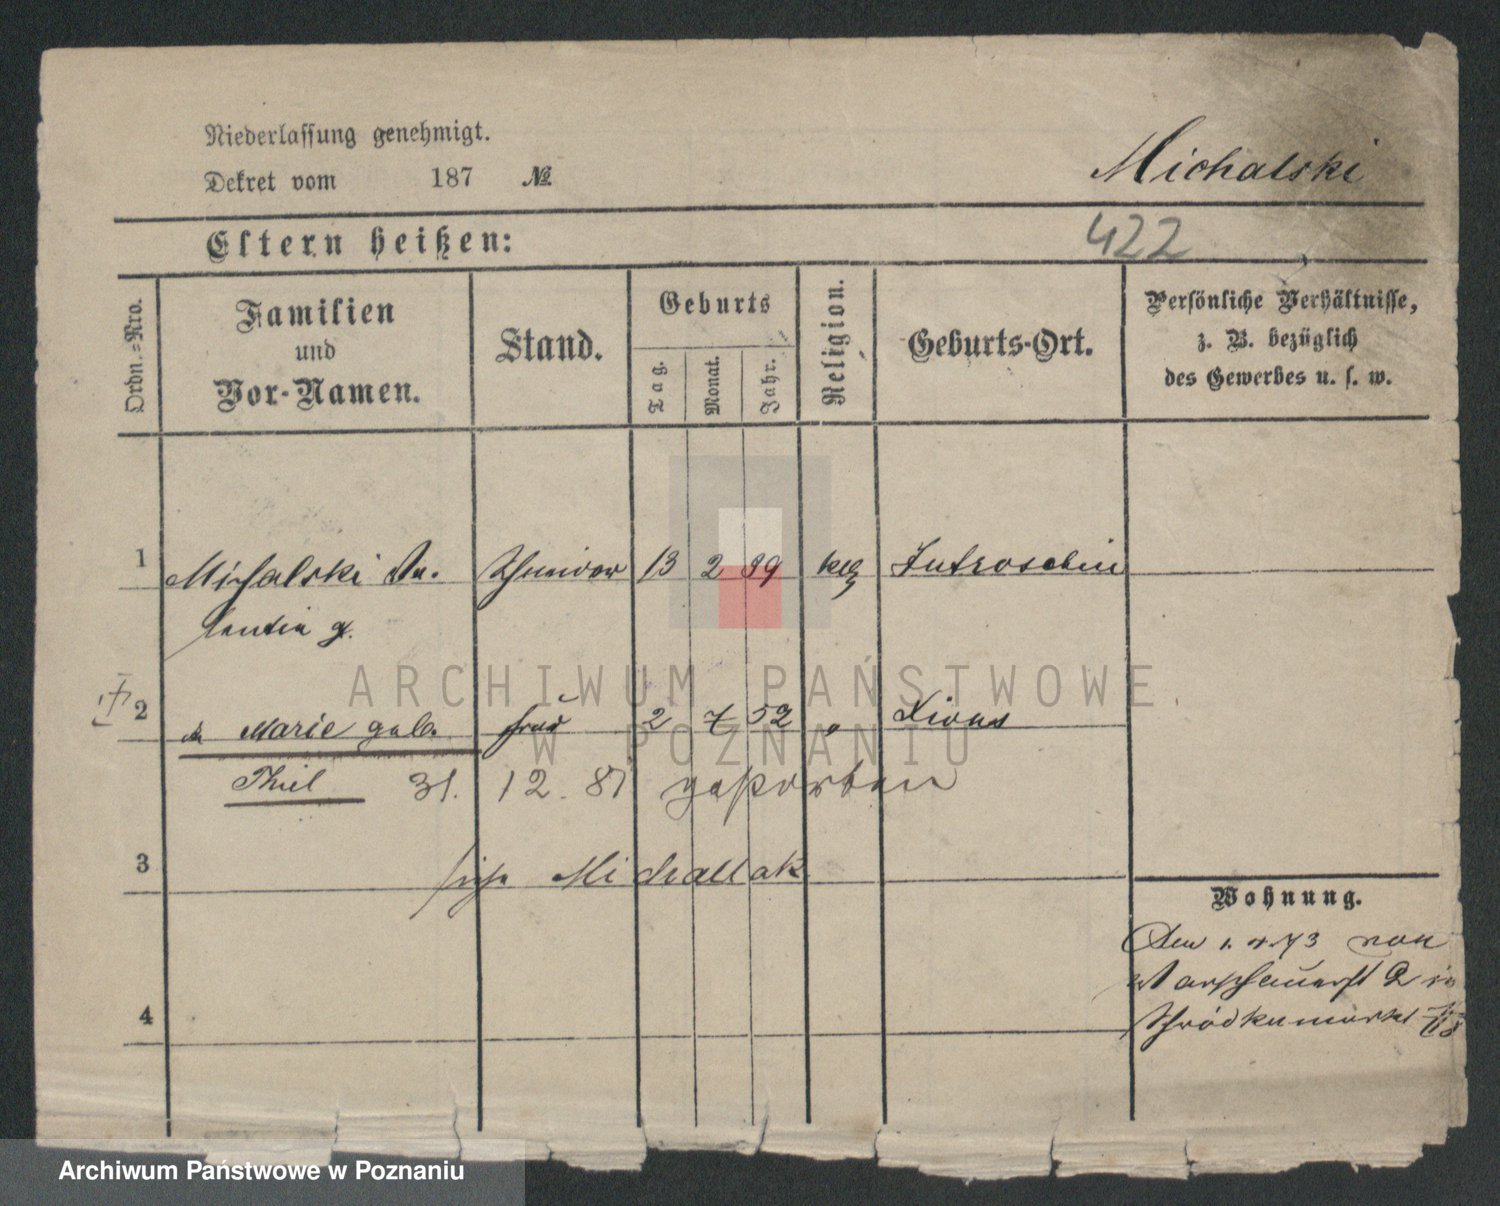 Niederlassung genehmigt.
Dekret vom 187 №
Michalski
422
Eltern heißen:
Ordn.=Nro.
Familien
und
Vor-Namen.
Stand.
Geburts
Tag.
Monat.
Jahr.
Religion.
Geburts-Ort.
Persönliche Verhältnisse,
z. B. bezüglich
des Gewerbes u. s. w.
1 Michalski Va- Schneider 13 2 39 Jutroschin
lentin
2 Marie geb. Frau 2 7 52 " Xions
Thiel 31. 12. 81 gestorben
3 siehe Michallak
Wohnung.
Den 1. 4. 73 von
Warschauerst 2 in
Schrödkamarkt
4
ARCHIWUM PAŃSTWOWE
W POZNANIU
Archiwum Państwowe w Poznaniu